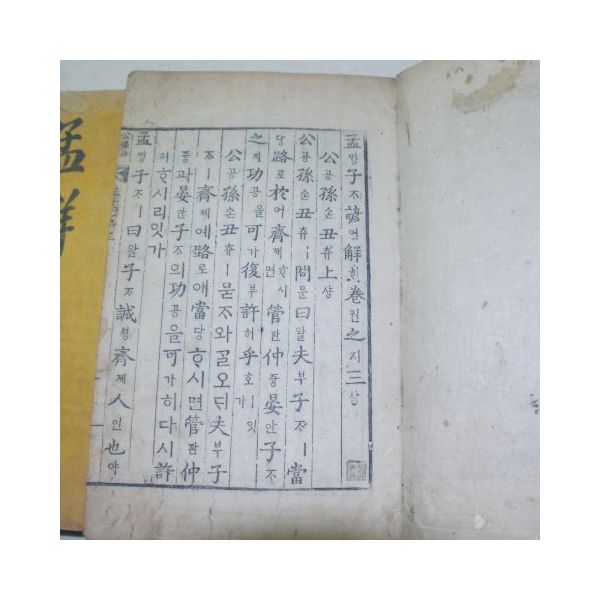 孟ᄆᆡᇰ子ᄌᆞ諺언解ᄒᆡ卷권之지三삼
公공孫손丑츄上샹
公공孫손丑츄ㅣ問문曰왈夫부子ᄌᆞㅣ當
당路로於어齊졔ᄒᆞ시면管관仲듕晏안子ᄌᆞ
之지功공을可가復부許허乎호ㅣ잇가
公공孫손丑츄ㅣ묻ᄌᆞ와ᄀᆞᆯ오ᄃᆡ夫부子
ᄌᆞㅣ齊졔예路로애當당ᄒᆞ시면管관仲
듕과晏안子ᄌᆞ의功공을可가히다시許
허ᄒᆞ시리잇가
孟ᄆᆡᇰ子ᄌᆞㅣ曰왈子ᄌᆞ誠셩齊졔人인也야
孟